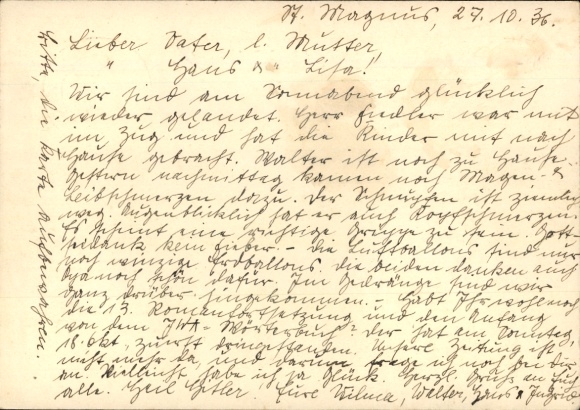 St. Magnus, 27.10.36.
Lieber Vater, l. Mutter,
" Hans & " Lisa!
Wir sind am Sonnabend glücklich
wieder gelandet. Herr Fiedler war mit
im Zug und hat die Kinder mit nach
Hause gebracht. Walter ist noch zu Hause.
Gestern nachmittag kamen noch Magen- &
Leibschmerzen dazu. Der Schnupfen ist ziemlich
weg. Augenblicklich hat er auch Kopfschmerzen.
Es scheint eine richtige Grippe zu sein. Gott-
seidank kein Fieber. – Die Luftballons sind nur
noch winzige Erdballons. Die beiden danken auch
noch schön dafür. Im Gedränge sind wir
ganz drüber hingekommen. – Habt Ihr wohl noch
die 13. Romanfortsetzung und den Anfang
von dem Wörterbuch? der hat am Sonntag,
18. Okt, zuerst dringestanden. Unsere Zeitung ist
nicht mehr da, und darum frage ich noch bei Dir
an. Vielleicht habe ich ja Glück. Herzl. Gruß an Euch
alle. Heil Hitler. Eure Wilma, Walter, Hans & Ingrid
Bitte, die Karte aufbewahren.